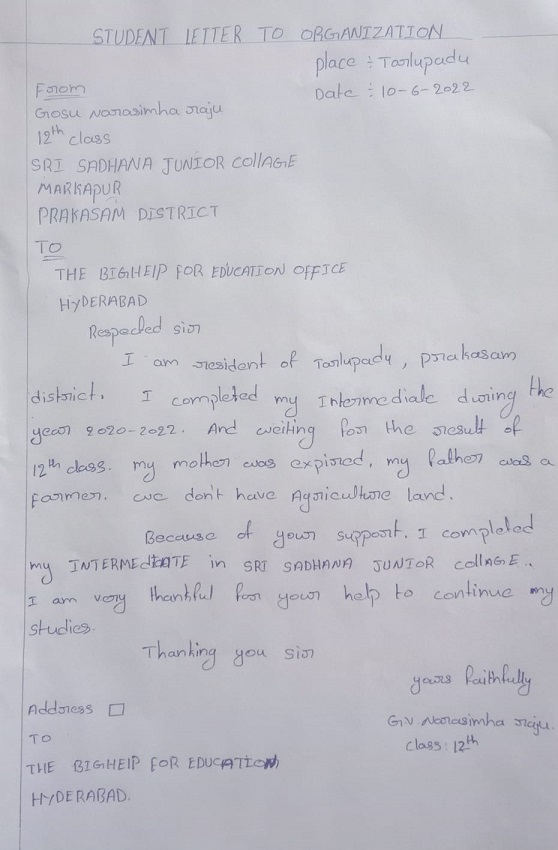 STUDENT LETTER TO ORGANIZATION
place : Tarlupadu
Date : 10-6-2022
From
Gosu Narasimha raju
12th class
SRI SADHANA JUNIOR COllAGE
MARKAPUR
PRAKASAM DISTRICT
TO
THE BIGHElP FOR EDUCATION OFFICE
HYDERABAD
Respected sir
I am resident of Tarlupadu, prakasam
district. I completed my Intermediate during the
year 2020-2022. And weiting for the result of
12th class. my mother was expired, my father was a
farmer. we don't have Agriculture land.
Because of your support. I completed
my INTERMEdIATE in SRI SADHANA JUNIOR COllAGE..
I am very thankful for your help to continue my
studies.
Thanking you sir
yours faithfully
Address
G.V. Narasimha raju.
class: 12th
TO
THE BIGHElP FOR EDUCATION
HYDERABAD.